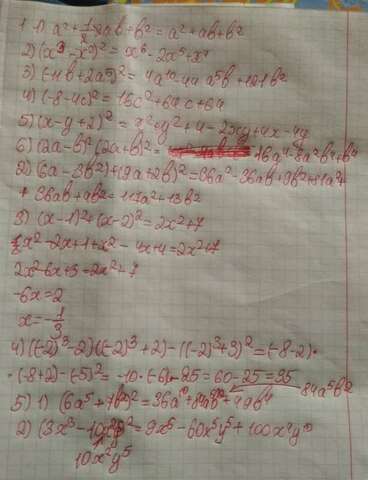 1. 1) a² + 1/2 · 2ab + b² = a² + ab + b²
2) (x³ - x²)² = x⁶ - 2x⁵ + x⁴
3) (-11b + 2a⁵)² = 4a¹⁰ - 44a⁵b + 121b²
4) (-8 - 4c)² = 16c² + 64c + 64
5) (x - y + 2)² = x² + y² + 4 - 2xy + 4x - 4y
6) (2a - b)² (2a + b)² = 16a⁴ - 8a²b² + b⁴
2) (6a - 3b²) + (9a + 2b)² = 36a² - 36ab + 9b² + 81a² +
+ 36ab + 4b² = 117a² + 13b²
3) (x - 1)² + (x - 2)² = 2x² + 7
x² - 2x + 1 + x² - 4x + 4 = 2x² + 7
2x² - 6x + 5 = 2x² + 7
-6x = 2
x = -1/3
4) ((-2)³ - 2)((-2)³ + 2) - ((-2)³ + 3)² = (-8 - 2) ·
· (-8 + 2) - (-5)² = -10 · (-6) - 25 = 60 - 25 = 35
84a⁵b²
5) 1) (6a⁵ + 7b²)² = 36a¹⁰ + 84a⁵b² + 49b⁴
2) (3x³ - 10x²y⁵)² = 9x⁶ - 60x⁵y⁵ + 100x⁴y¹⁰
10x²y⁵